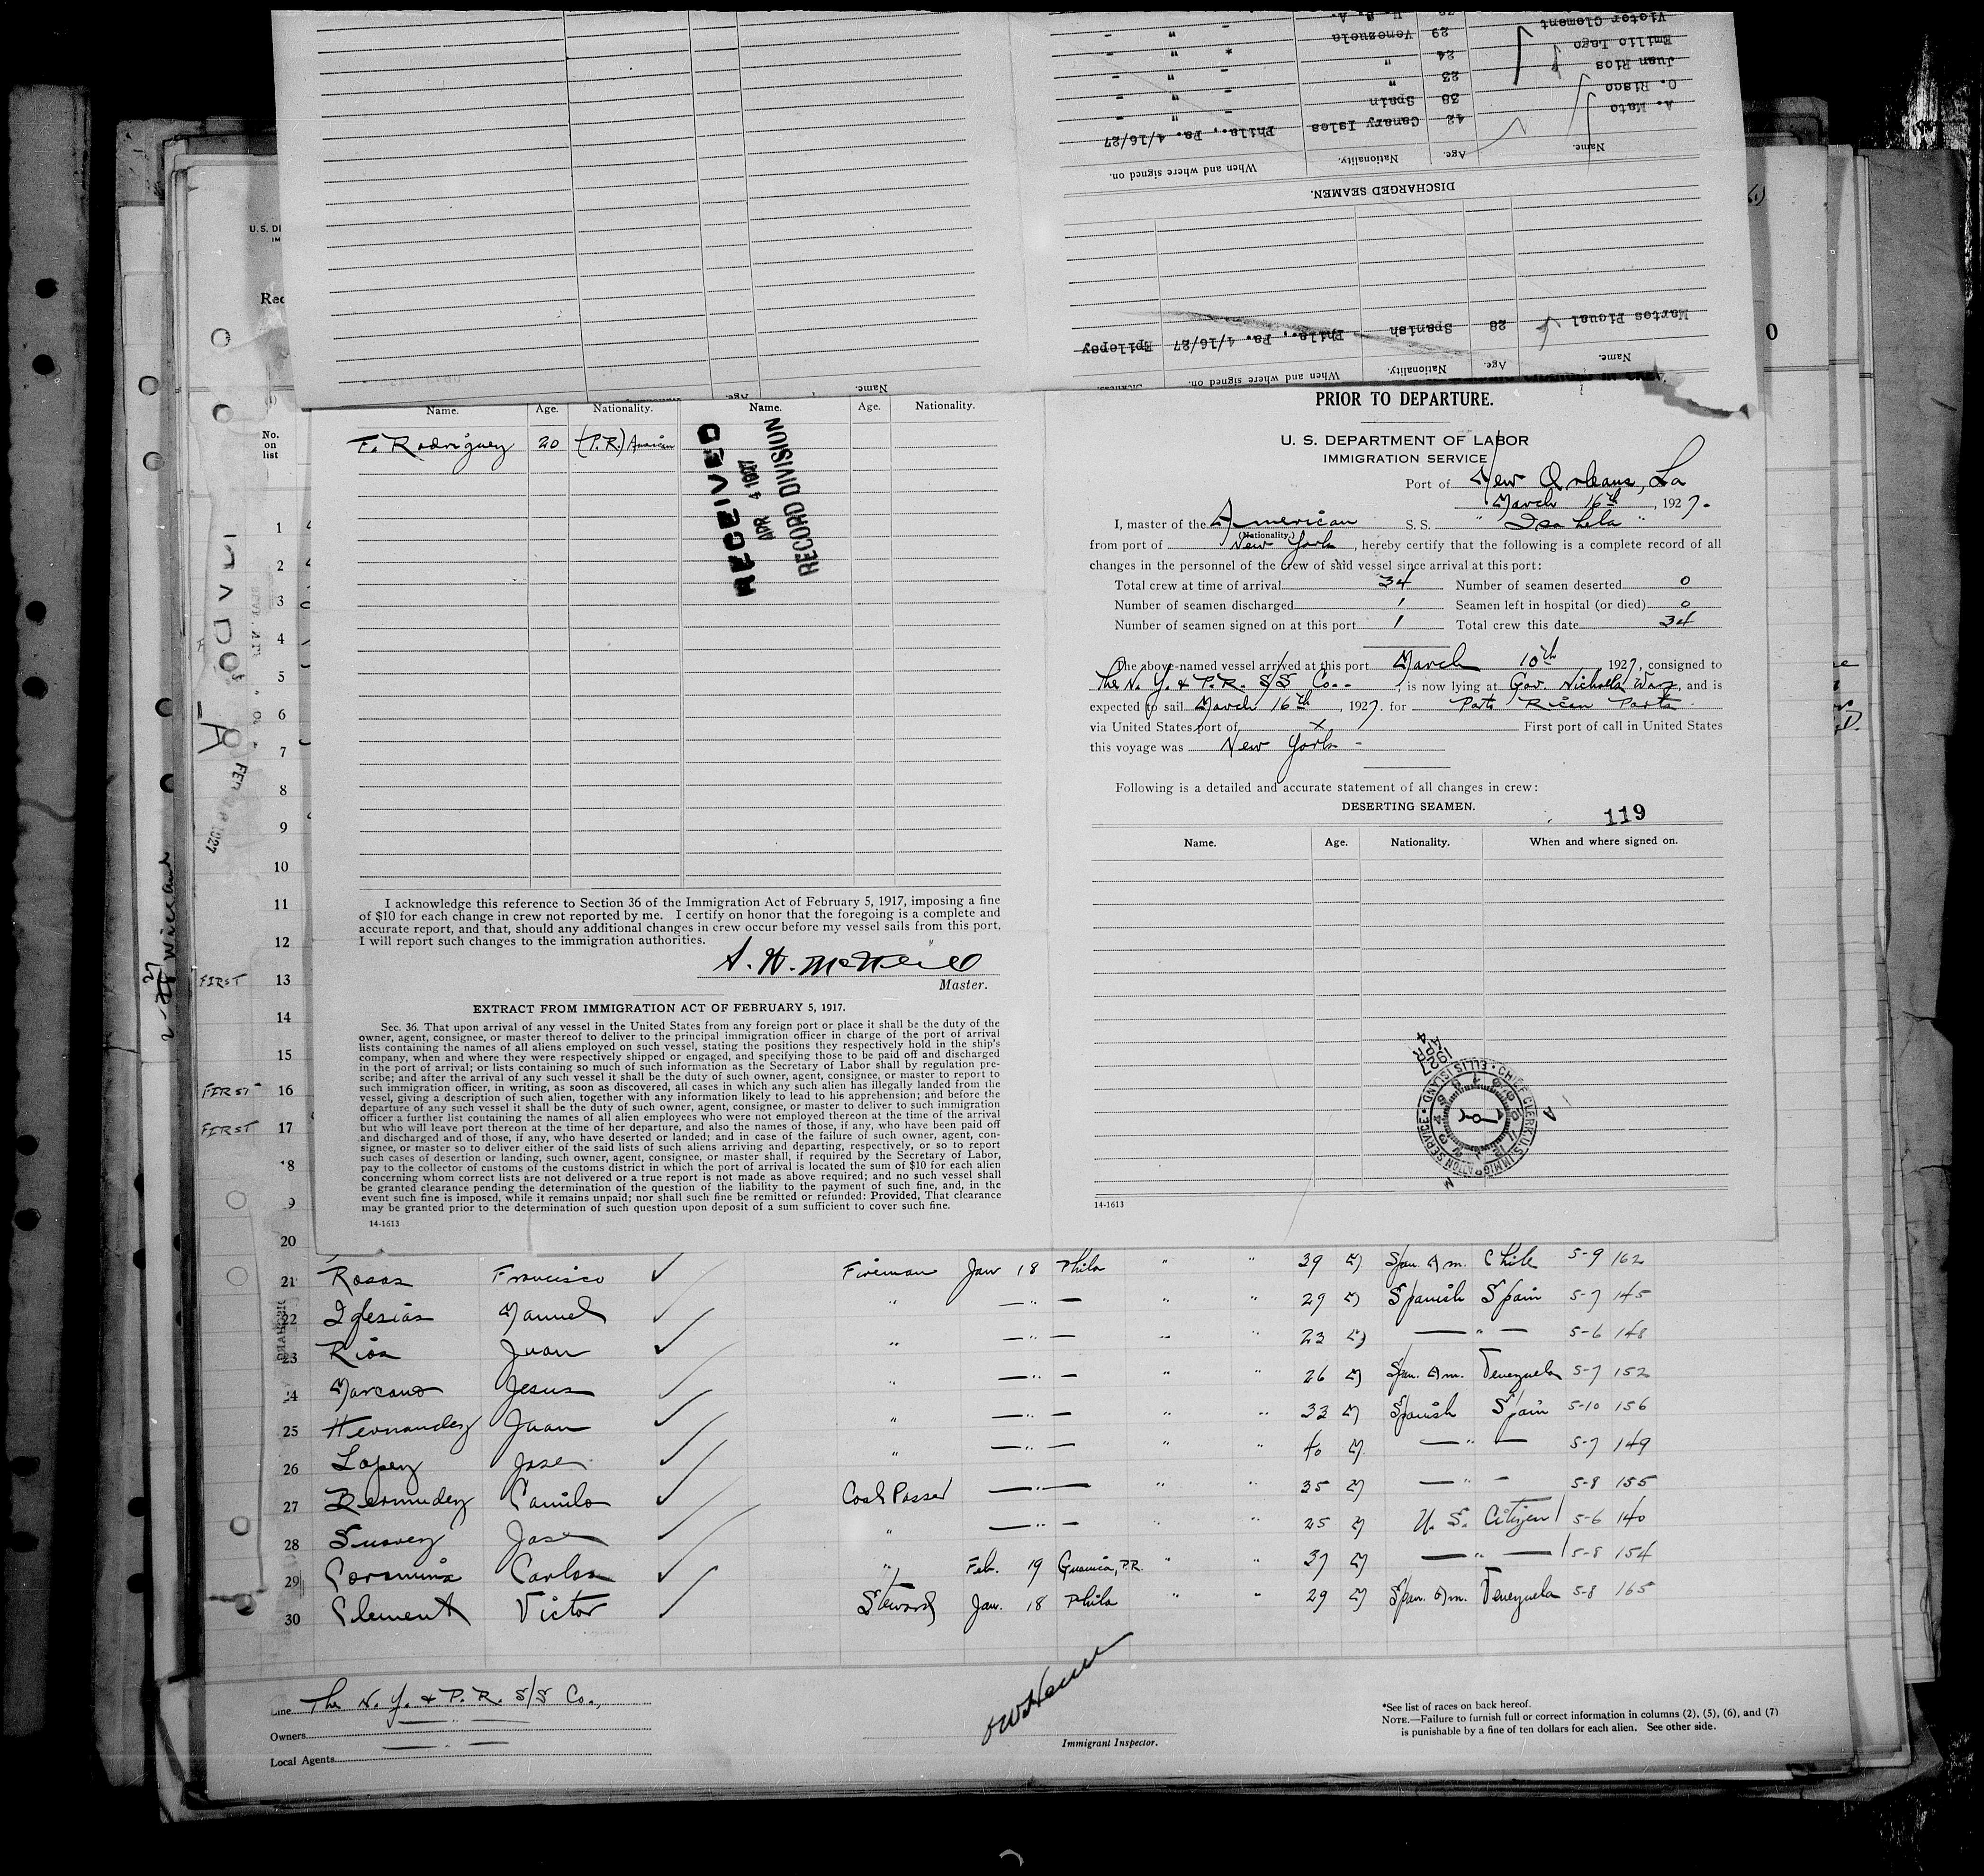 Victor Clement
29 Venezuela " -
Emilio Lago 24 " " -
Juan Rios 23 " " -
O. Risco 38 Spain " -
A. Mato 42 Canary Isles Phila., Pa. 4/16/27
Name. Age. Nationality. When and where signed on.
DISCHARGED SEAMEN.
Martos Picual 28 Spanish Phila., Pa. 4/16/27 Epilepsy
Name. Age. Nationality. When and where signed on. Sickness.
Name. Age.
U. S. DE
IM
Rec
No. on list
Name. Age. Nationality. Name. Age. Nationality.
F. Rodriguez 20 (P.R.) American
RECEIVED
APR 4 1927
RECORD DIVISION
I acknowledge this reference to Section 36 of the Immigration Act of February 5, 1917, imposing a fine
of $10 for each change in crew not reported by me. I certify on honor that the foregoing is a complete and
accurate report, and that, should any additional changes in crew occur before my vessel sails from this port,
I will report such changes to the immigration authorities.
Master.
EXTRACT FROM IMMIGRATION ACT OF FEBRUARY 5, 1917.
Sec. 36. That upon arrival of any vessel in the United States from any foreign port or place it shall be the duty of the
owner, agent, consignee, or master thereof to deliver to the principal immigration officer in charge of the port of arrival
lists containing the names of all aliens employed on such vessel, stating the positions they respectively hold in the ship's
company, when and where they were respectively shipped or engaged, and specifying those to be paid off and discharged
in the port of arrival; or lists containing so much of such information as the Secretary of Labor shall by regulation pre-
scribe; and after the arrival of any such vessel it shall be the duty of such owner, agent, consignee, or master to report to
such immigration officer, in writing, as soon as discovered, all cases in which any such alien has illegally landed from the
vessel, giving a description of such alien, together with any information likely to lead to his apprehension; and before the
departure of any such vessel it shall be the duty of such owner, agent, consignee, or master to deliver to such immigration
officer a further list containing the names of all alien employees who were not employed thereon at the time of the arrival
but who will leave port thereon at the time of her departure, and also the names of those, if any, who have been paid off
and discharged and of those, if any, who have deserted or landed; and in case of the failure of such owner, agent, con-
signee, or master so to deliver either of the said lists of such aliens arriving and departing, respectively, or so to report
such cases of desertion or landing, such owner, agent, consignee, or master shall, if required by the Secretary of Labor,
pay to the collector of customs of the customs district in which the port of arrival is located the sum of $10 for each alien
concerning whom correct lists are not delivered or a true report is not made as above required; and no such vessel shall
be granted clearance pending the determination of the question of the liability to the payment of such fine, and, in the
event such fine is imposed, while it remains unpaid; nor shall such fine be remitted or refunded: Provided, That clearance
may be granted prior to the determination of such question upon deposit of a sum sufficient to cover such fine.
14-1613
PRIOR TO DEPARTURE.
U. S. DEPARTMENT OF LABOR
IMMIGRATION SERVICE
Port of New Orleans, La
March 16th, 1927.
I, master of the American S. S. "Isabela"
(Nationality.)
from port of New York, hereby certify that the following is a complete record of all
changes in the personnel of the crew of said vessel since arrival at this port:
Total crew at time of arrival 34 Number of seamen deserted 0
Number of seamen discharged 1 Seamen left in hospital (or died) 0
Number of seamen signed on at this port 1 Total crew this date 34
The above-named vessel arrived at this port March 10th, 1927, consigned to
The N. Y. & P. R. S/S Co.-, is now lying at Gov. Nicholls, and is
expected to sail March 16th, 1927. for Porto Rican Ports
via United States port of x First port of call in United States
this voyage was New York -
Following is a detailed and accurate statement of all changes in crew:
DESERTING SEAMEN.
119
Name. Age. Nationality. When and where signed on.
1927 APR 4
CHIEF CLERK U.S. IMMIGRATION SERVICE • ELLIS ISLAND •
14-1613
1
2
3
4
5
6
7
8
9
10
11
12
FIRST 13
14
15
FIRST 16
FIRST 17
18
9
20
21 Rosas Francisco ✓ Fireman Jan 18 Phila " " 39 M Span. Am. Chile 5-9 162
22 Iglesias Manuel ✓ " — " — " " 29 M Spanish Spain 5-7 145
23 Rios Juan ✓ " — " — " " 23 M — " — 5-6 148
24 Marcano Jesus ✓ " — " — " " 26 M Span. Am. Venezuela 5-7 152
25 Hernandez Juan ✓ " — " — " " 33 M Spanish Spain 5-10 156
26 Lopez Jose ✓ " — " — " " 40 M — " — 5-7 149
27 Bermudez Camilo ✓ Coal Passer — " — " " 35 M — " — 5-8 155
28 Suarez Jose ✓ " — " — " " 25 M U. S. Citizen 5-6 140
29 Carlos ✓ " Feb. 19 Guanica, P.R. " " 37 M — " — 5-8 154
30 Clement Victor ✓ Steward Jan. 18 Phila " " 29 M Span. Am. Venezuela 5-8 165
Line The N. Y. & P. R. S/S Co.,
Owners — " —
Local Agents — " —
Immigrant Inspector.
*See list of races on back hereof.
NOTE.—Failure to furnish full or correct information in columns (2), (5), (6), and (7)
is punishable by a fine of ten dollars for each alien. See other side.